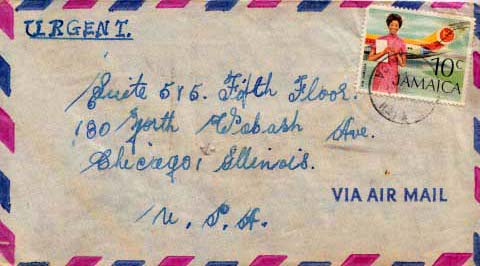 URGENT.
10c
JAMAICA
Suite 515. Fifth Floor.
180 North Wabash Ave.
Chicago, Illinois.
VIA AIR MAIL
U. S. A.